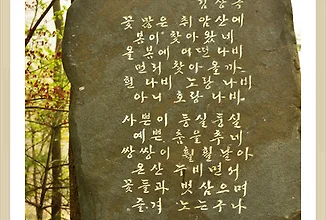 꽃 많은 취암산에
봄이 찾아 왔네
올 봄에 어떤 나비
먼저 찾아 올까
흰 나비 노랑 나비
아니 호랑 나비
사쁜이 둥실둥실
예쁜 춤을 추네
쌍쌍이 훨훨 날아
온산 누비면서
꽃들과 벗삼으며
즐겨 노는구나